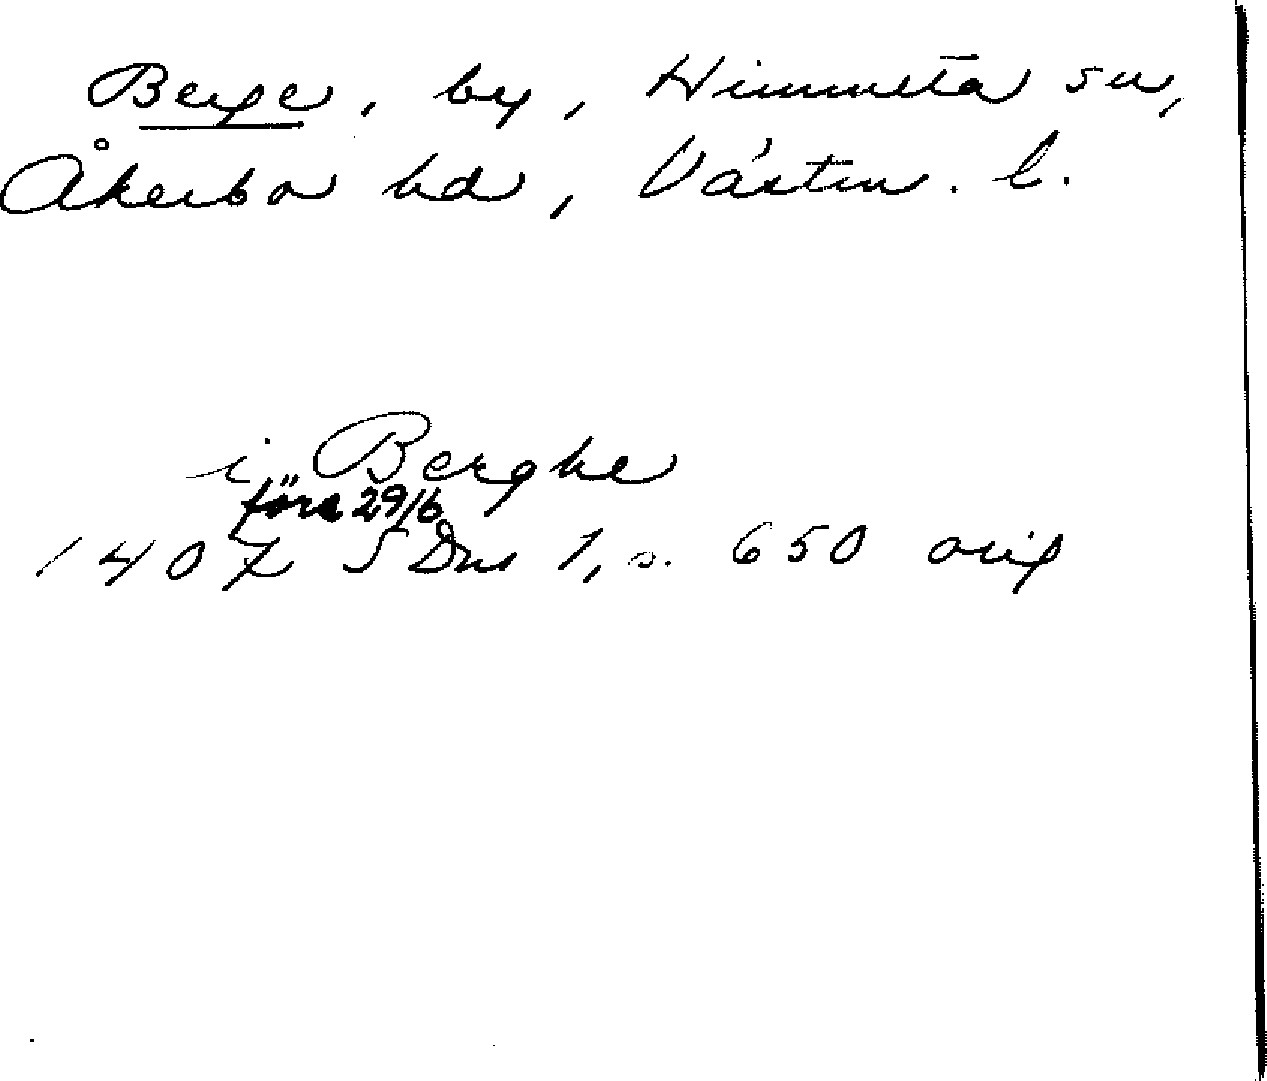 Berge, by, Himmeta sn,
Åkerbo hd, Västm. l.
i Berghe
före 29/6
1407 SDns 1, s. 650 orig